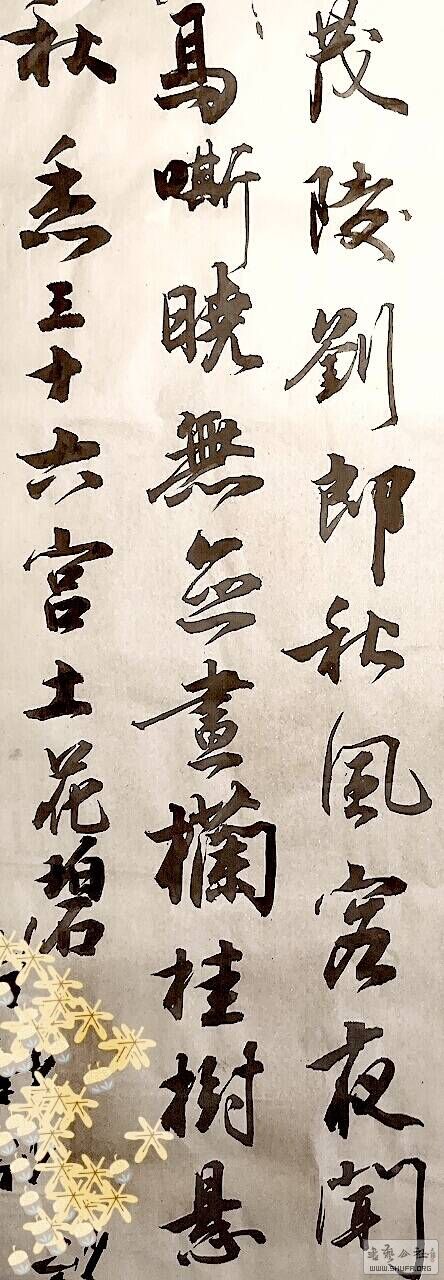 茂陵劉郎秋風客夜聞
馬嘶曉無迹畫欄桂樹懸
秋香三十六宮土花碧
书艺公社
WWW.SHUFA.ORG